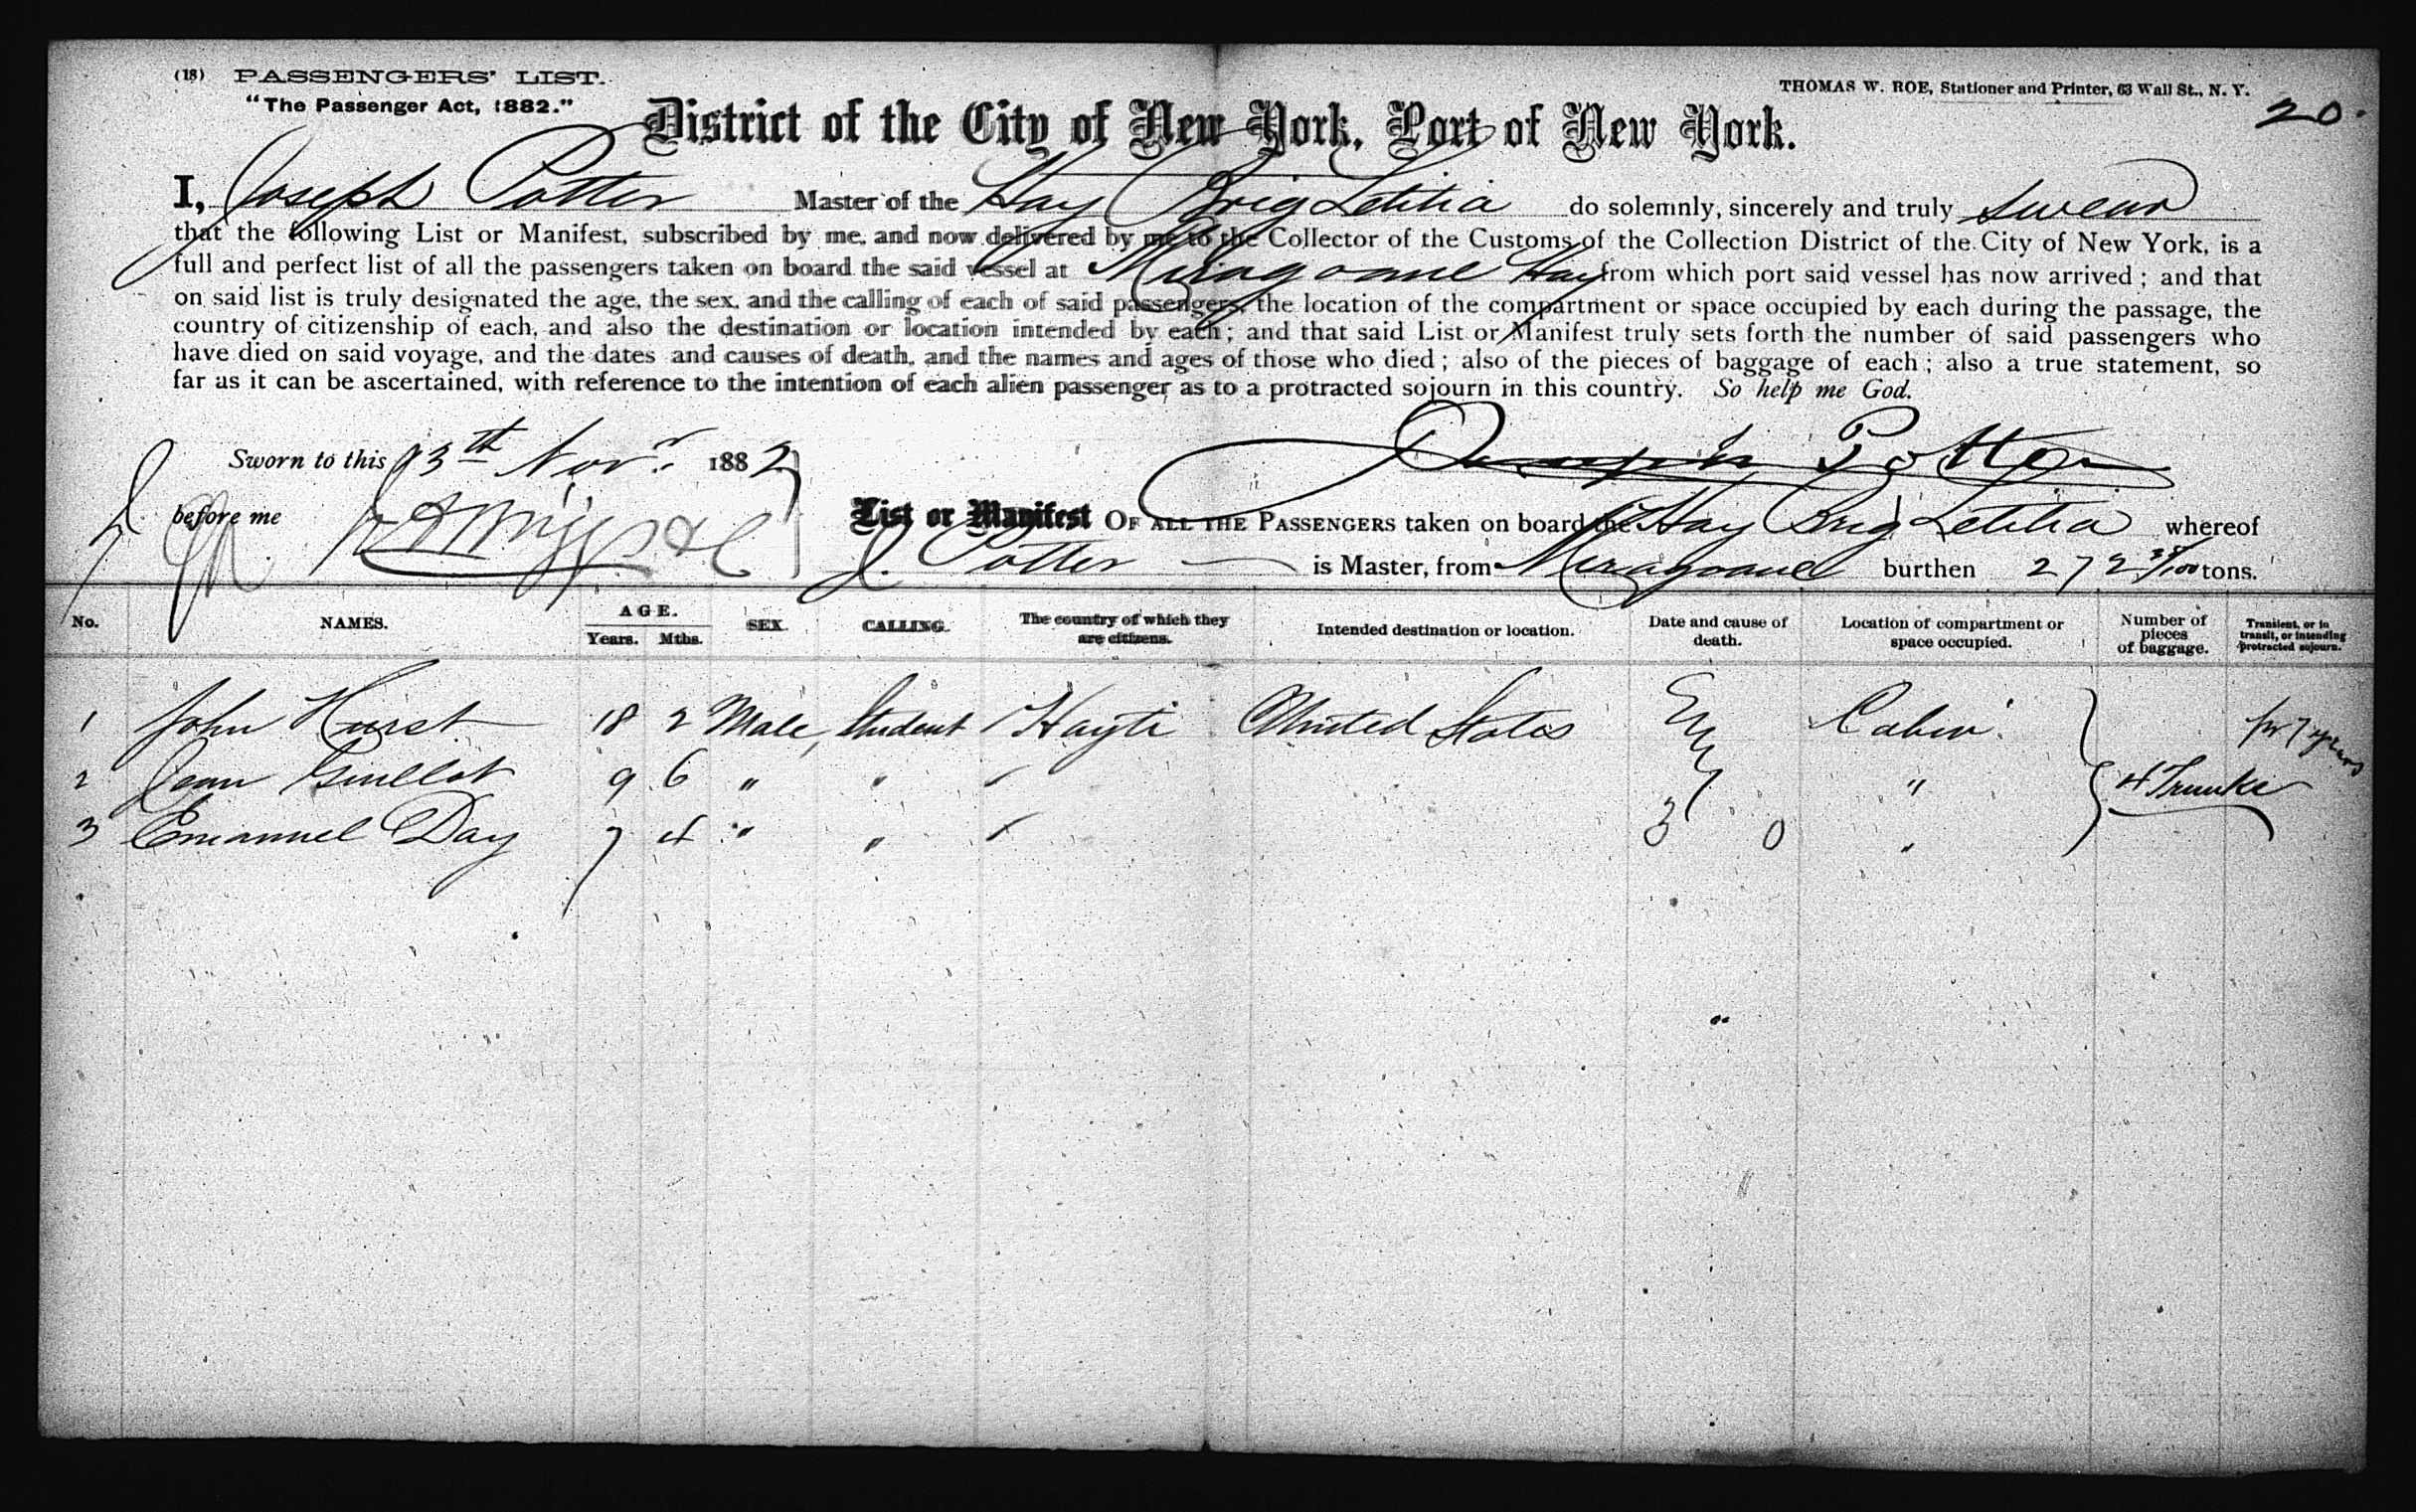 (18) PASSENGERS' LIST.
"The Passenger Act, 1882."
THOMAS W. ROE, Stationer and Printer, 63 Wall St., N. Y.
20.
District of the City of New York, Port of New York.
I, Joseph Potter Master of the Hay Brig Letitia do solemnly, sincerely and truly swear
that the following List or Manifest, subscribed by me, and now delivered by me to the Collector of the Customs of the Collection District of the City of New York, is a
full and perfect list of all the passengers taken on board the said vessel at Miragoane Hay from which port said vessel has now arrived; and that
on said list is truly designated the age, the sex, and the calling of each of said passengers, the location of the compartment or space occupied by each during the passage, the
country of citizenship of each, and also the destination or location intended by each; and that said List or Manifest truly sets forth the number of said passengers who
have died on said voyage, and the dates and causes of death, and the names and ages of those who died; also of the pieces of baggage of each; also a true statement, so
far as it can be ascertained, with reference to the intention of each alien passenger as to a protracted sojourn in this country. So help me God.
Sworn to this 13th Novr. 1882 Joseph Potter
before me
List or Manifest OF ALL THE PASSENGERS taken on board the Hay Brig Letitia whereof
J. Potter is Master, from Miragoane burthen 272 38/100 tons.
No. NAMES. AGE. Years. Mths. SEX. CALLING. The country of which they are citizens. Intended destination or location. Date and cause of death. Location of compartment or space occupied. Number of pieces of baggage. Transient, or in transit, or intending protracted sojourn.
1 John Hurst 18 2 Male, Student Hayti United States Cabin for 7 years
2 Jean Guillot 9 6 " " " " 4 Trunks
3 Emanuel Day 7 4 " " " "